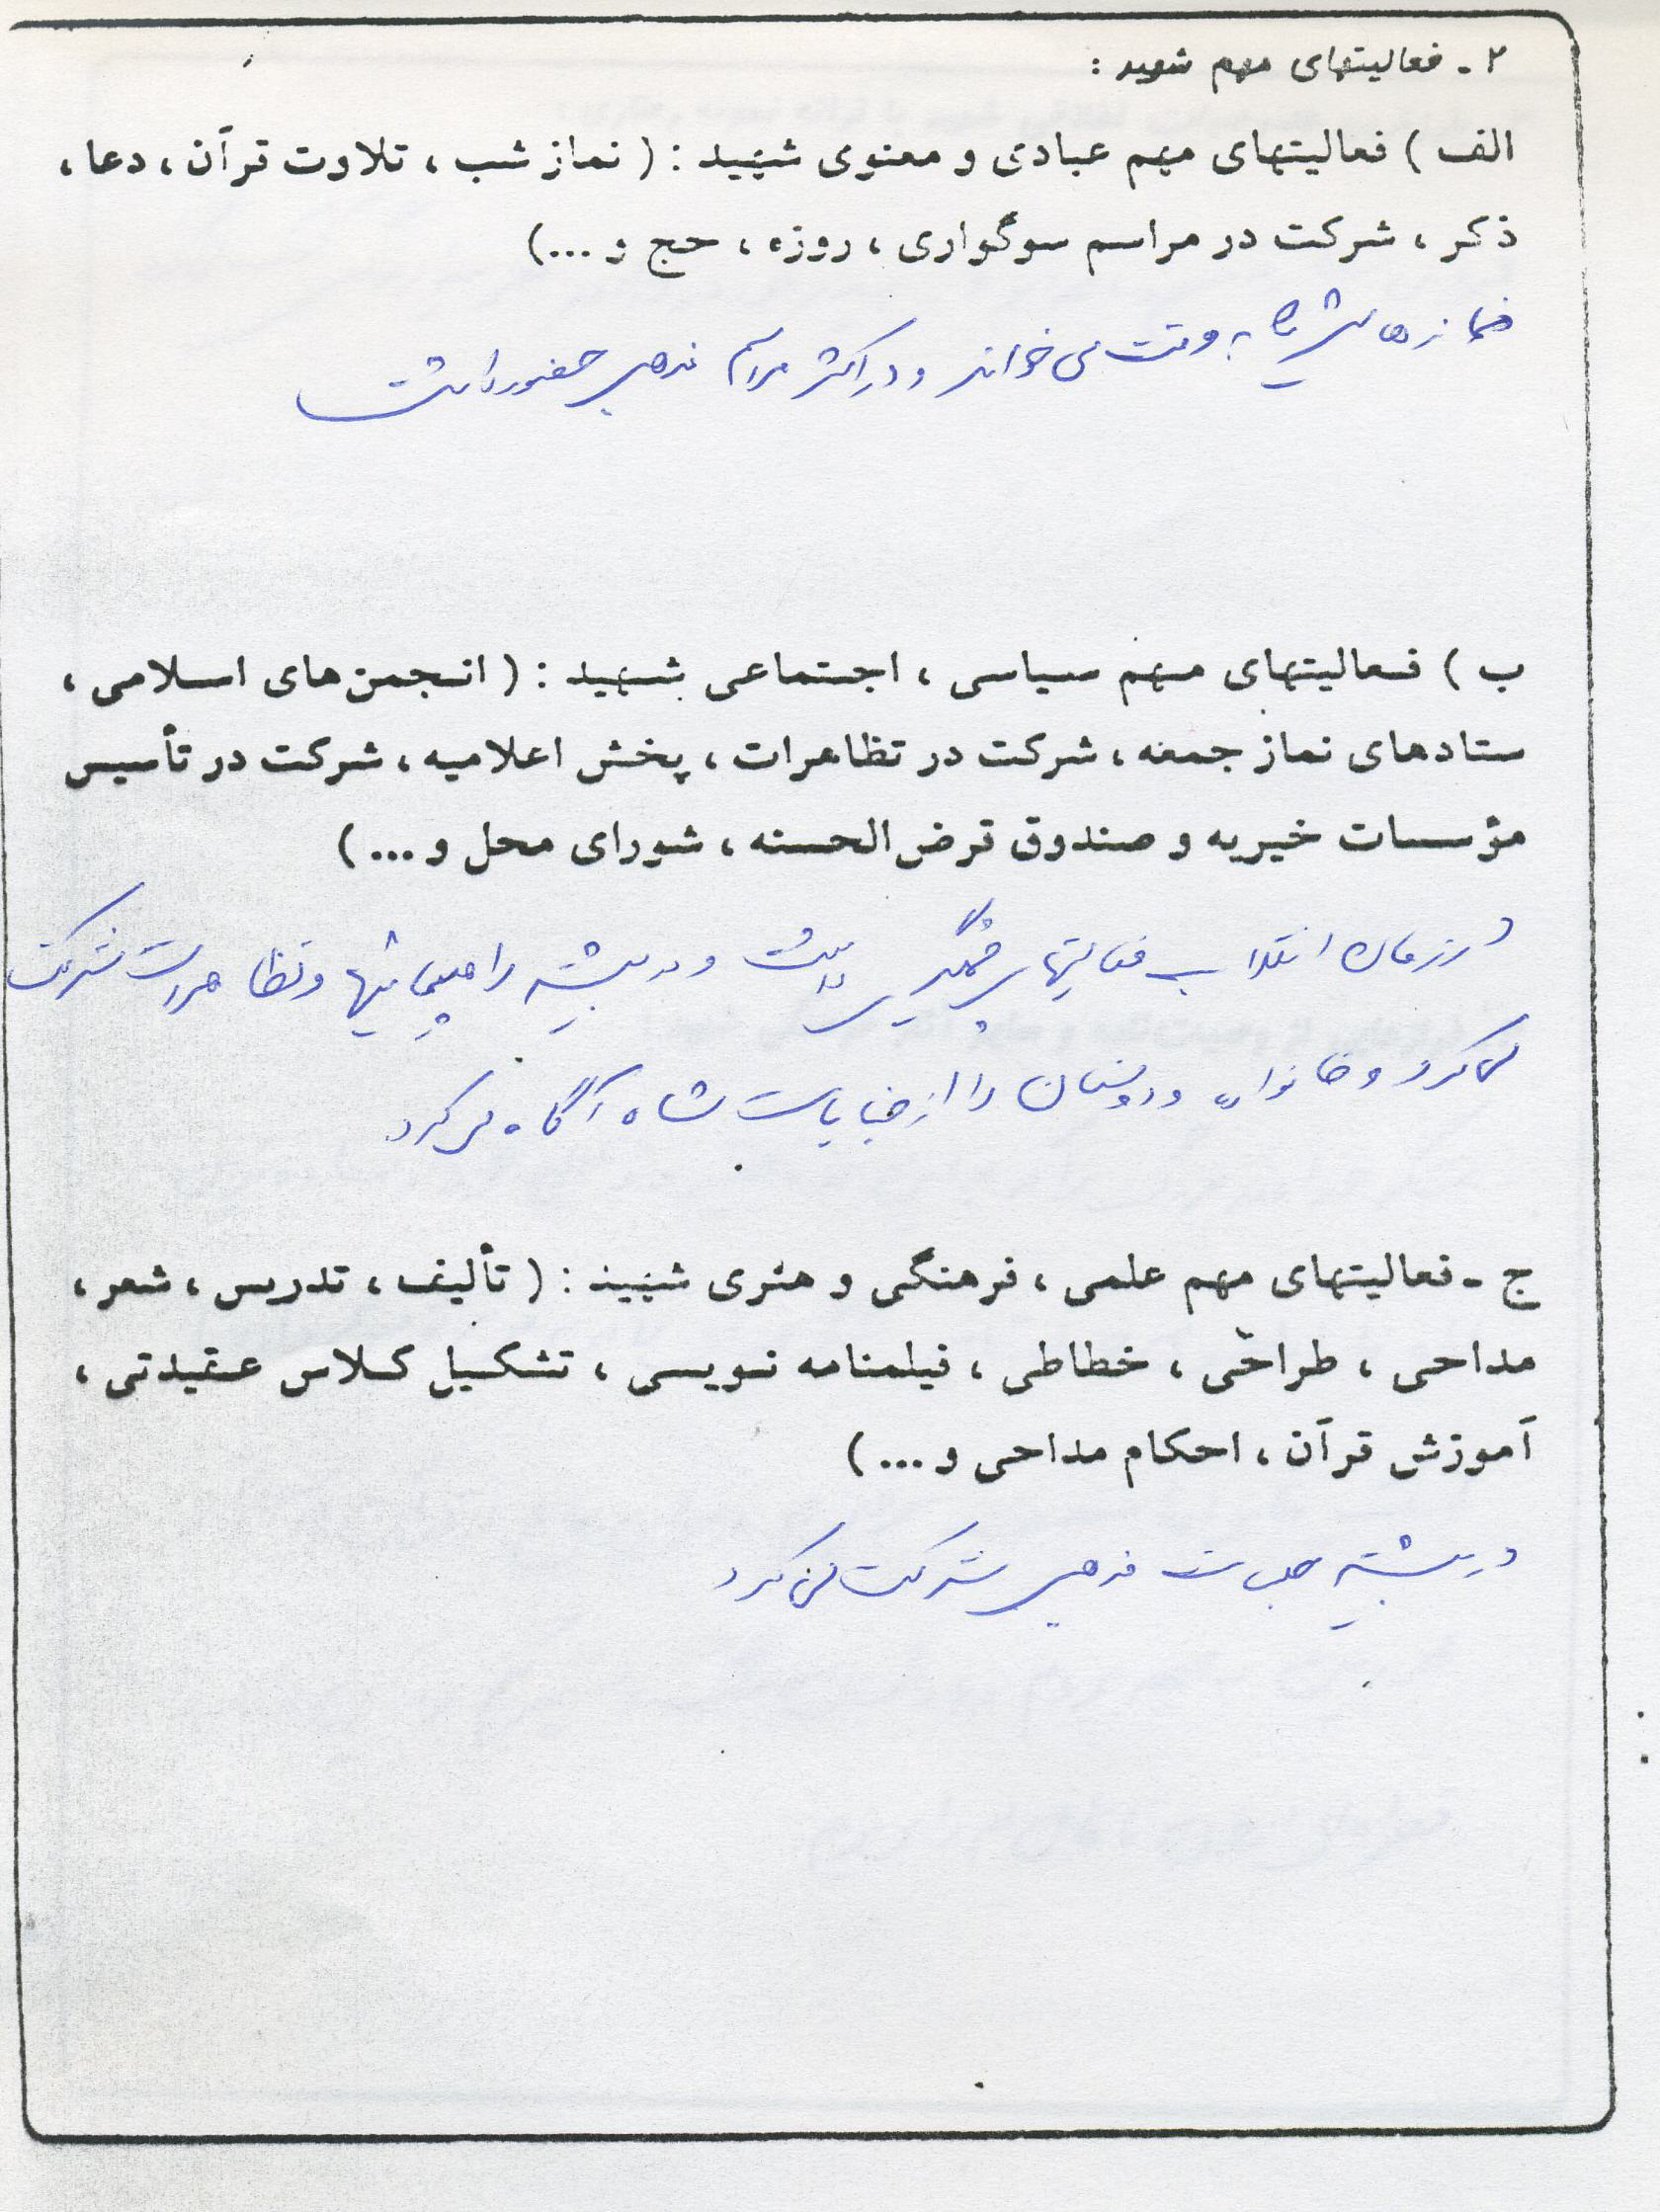 ۲ ـ فعالیتهای مهم شهید :
الف ) فعالیتهای مهم عبادی و معنوی شهید : ( نماز شب ، تلاوت قرآن ، دعا ،
ذکر ، شرکت در مراسم سوگواری ، روزه ، حج و ...)
نمازهایش را به وقت می خواند و در اکثر مراسم مذهبی حضور داشت
ب ) فعالیتهای مهم سیاسی ، اجتماعی شهید : ( انجمن‌های اسلامی ،
ستادهای نماز جمعه ، شرکت در تظاهرات ، پخش اعلامیه ، شرکت در تأسیس
مؤسسات خیریه و صندوق قرض‌الحسنه ، شورای محل و ... )
در زمان انقلاب فعالیتهای چشمگیری داشت و در بیشتر راهپیمائیها و تظاهرات شرکت
می کرد و خانواده و دوستان را از جنایات شاه آگاه می کرد
ج ـ فعالیتهای مهم علمی ، فرهنگی و هنری شهید : ( تألیف ، تدریس ، شعر ،
مداحی ، طراحی ، خطاطی ، فیلمنامه نویسی ، تشکیل کلاس عقیدتی ،
آموزش قرآن ، احکام مداحی و ... )
در بیشتر جلسات مذهبی شرکت می کرد